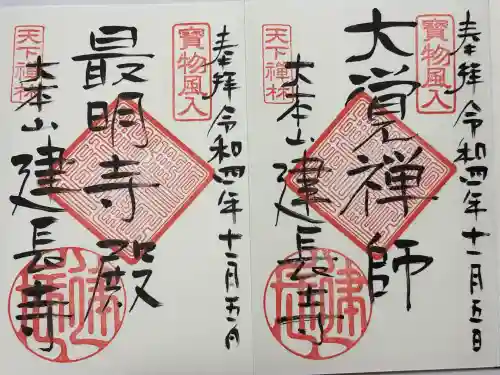 奉拝 令和四年十一月五日
寳物風入
大覚禅師
天下禅林
大本山 建長寺
奉拝 令和四年十一月五日
寳物風入
最明寺殿
天下禅林
大本山 建長寺